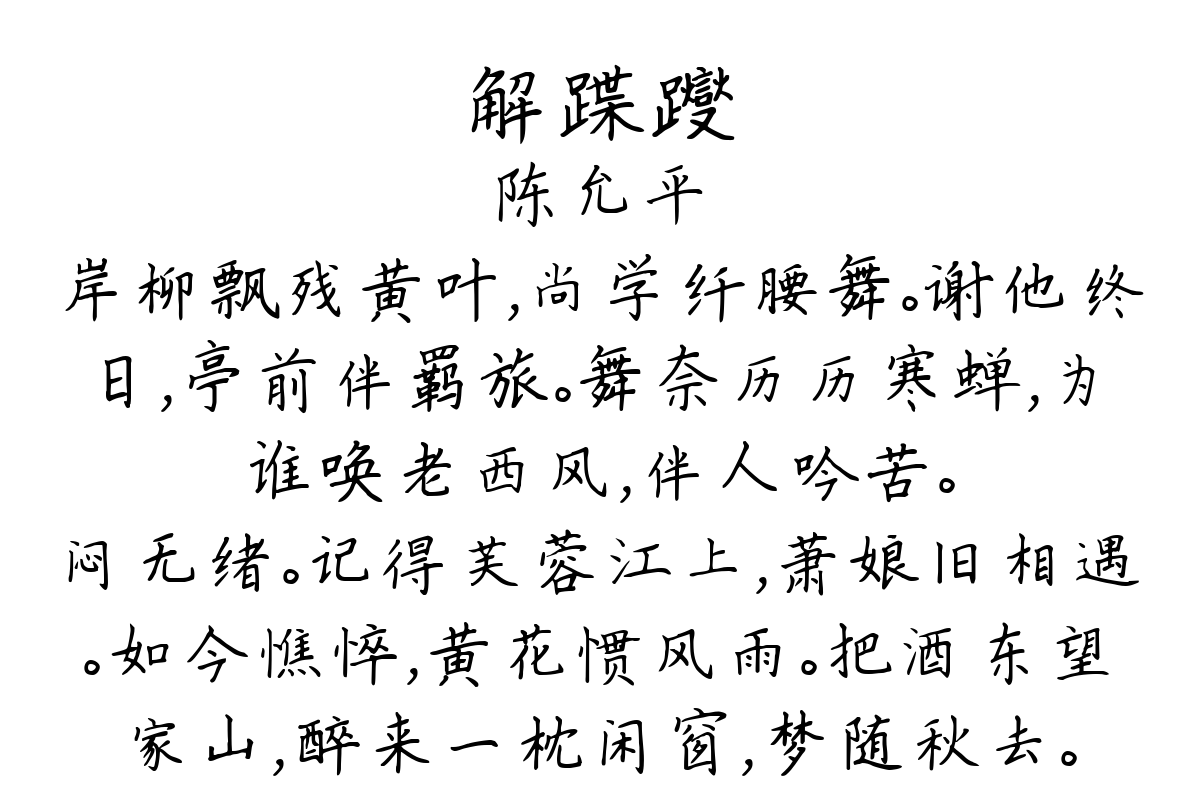 解蹀躞
陈允平
岸柳飘残黄叶,尚学纤腰舞。谢他终
日,亭前伴羁旅。舞奈历历寒蝉,为
谁唤老西风,伴人吟苦。
闷无绪。记得芙蓉江上,萧娘旧相遇
。如今憔悴,黄花惯风雨。把酒东望
家山,醉来一枕闲窗,梦随秋去。